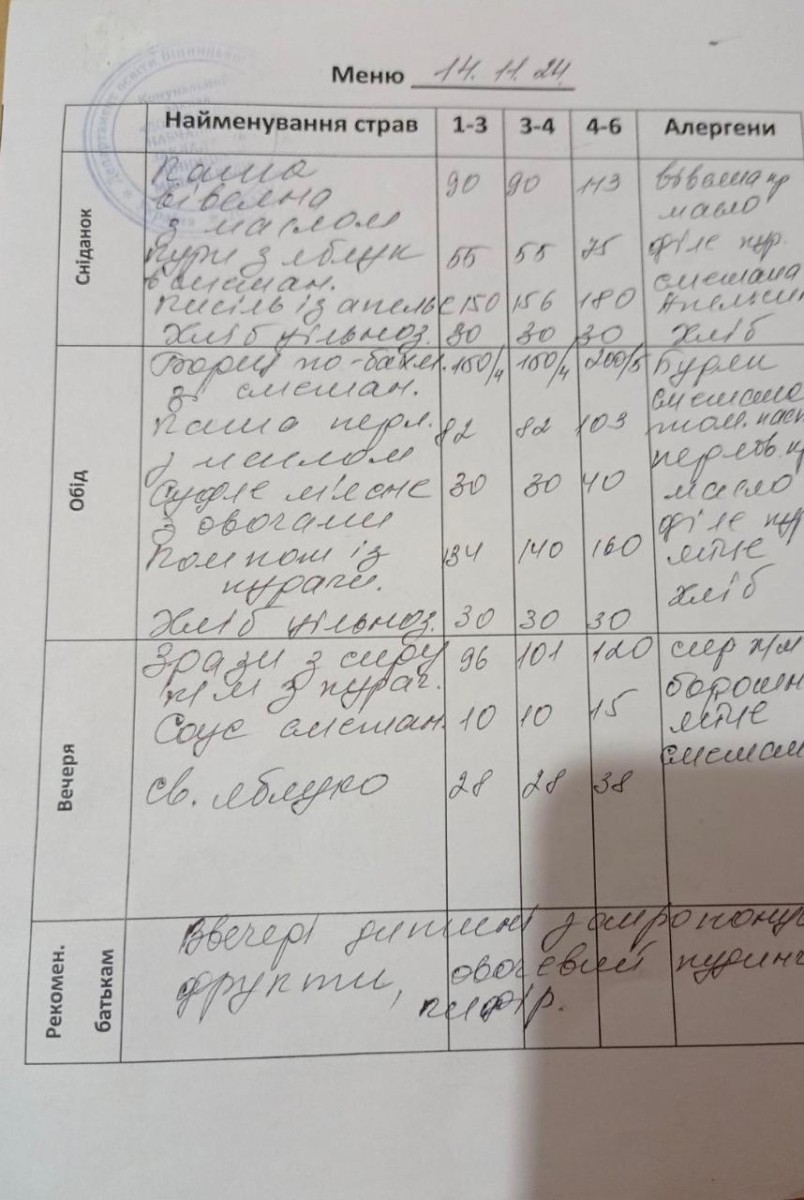 Меню 14.11.24
Найменування страв 1-3 3-4 4-6 Алергени
Сніданок
Каша вівсяна
з маслом 90 90 113
масло
Кури з яблук 55 55 75 філе кур.
в сметан. сметана
Кисіль із апельс 150 156 180 Апельсин
Хліб цільноз. 30 30 30 Хліб
Обід
Борщ 150/4 150/4 200/5 Буряк
зі сметан. сметана
Каша перл. 82 82 103 том. паст
з маслом
Суфле м'ясне 30 30 40 масло
з овочами філе кур
Компот із 134 140 160 яйце
кураги. хліб
Хліб цільноз. 30 30 30
Вечеря
Зрази з сиру 96 101 120 сир к/м
к/м з кураг. борошн
Соус сметан. 10 10 15 яйце
сметан
Св. яблуко 28 28 38
Рекомен.
батькам
Ввечері дитині запропону
фрукти, овочевий пудинг
кефір.